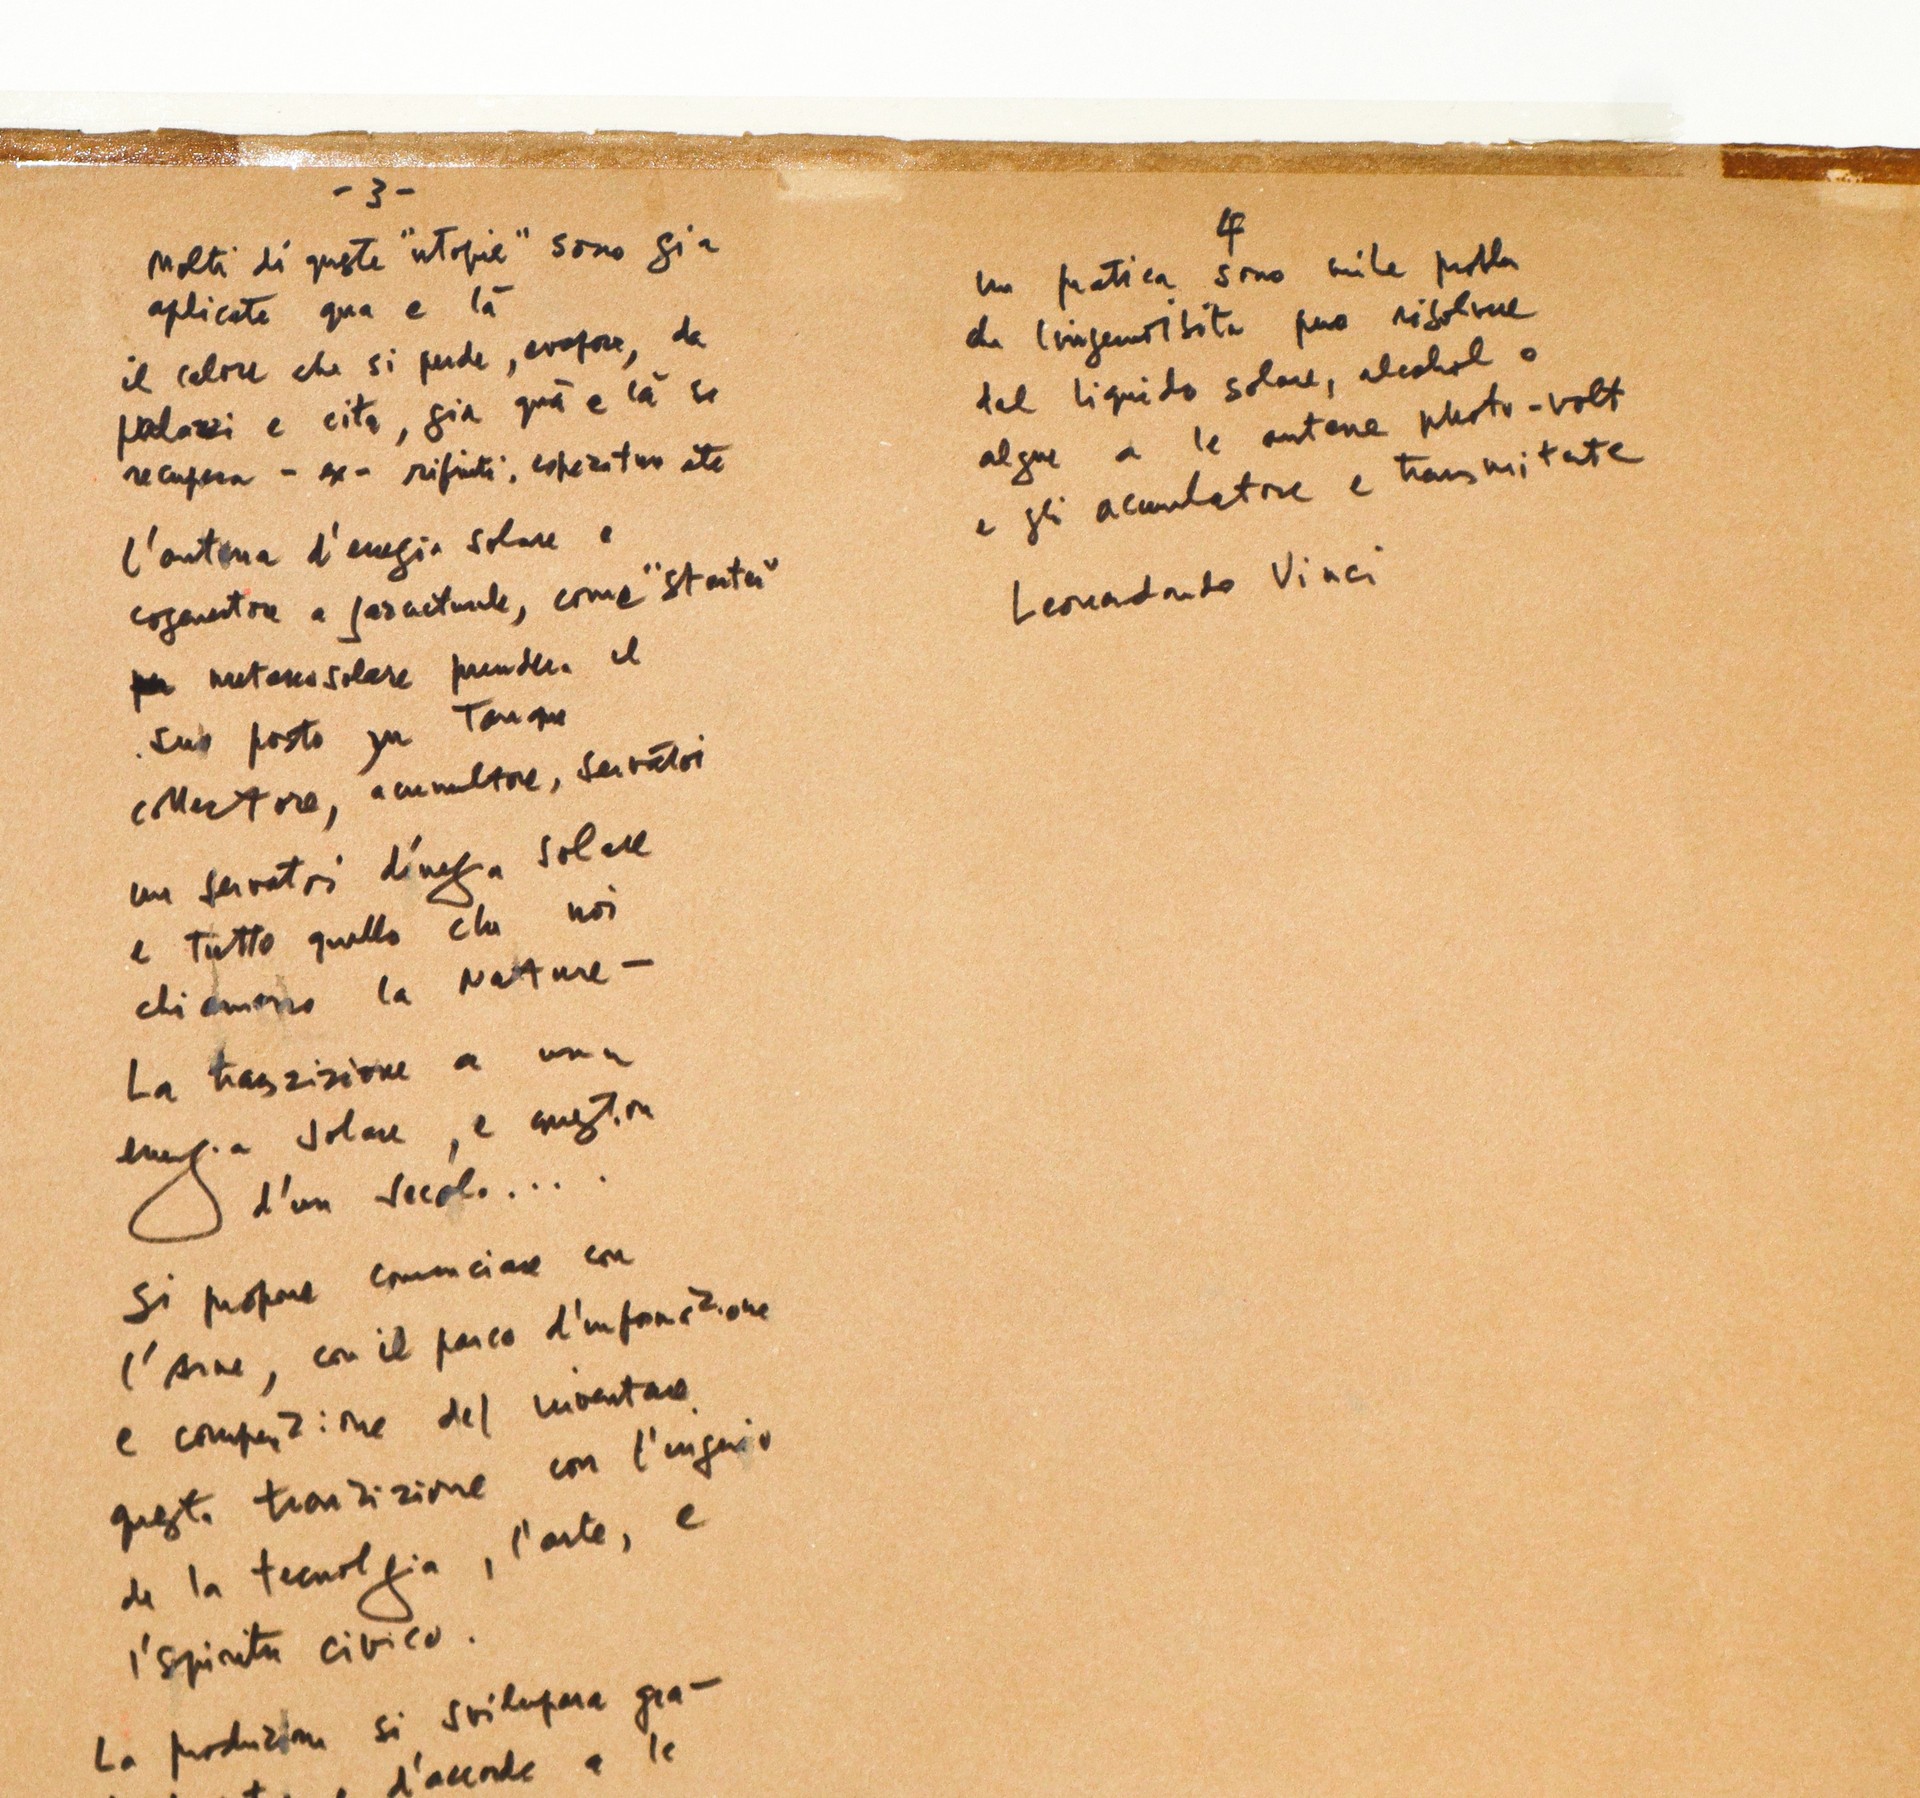 - 3 -
Molti di queste "utopie" sono gia
aplicate qua e lā
il calore che si perde, evapore, da
palazzi e cita, gia quā e lā se
recupera - ex - rifiuti,
l'antena d'energia solare e
come "
metanosolare prendera il
suo posto Tanque
collectore, acumultore, servātoi
un servatoi solare
e tutto quello che noi
chiamamo la Nature -
La transzizione a una
energia solare, e question
d'un secolo . . . .
Si propone comminciare con
l'Arne, con il parco d'informazione
e del inventare
questa tranzizione con l'ingenio
de la tecnolgia, l'arte, e
l'spirita civico.
La produzione si svilupara gra-
d'accorde a le
4
un pratica sono mile probla
che puo risolvere
dal liquido solare, alcohol o
algue a le antene photo-volt
e gli acumulatore e transmitate
Leonardondo Vinci